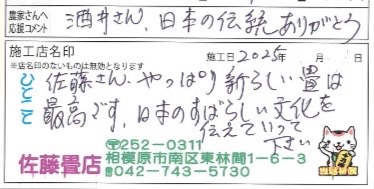 農家さんへ
応援コメント
酒井さん、日本の伝統ありがとう
施工店名印
※店名印のないものは無効となります
施工日 2025年 月 日
ひとこと
佐藤さん、やっぱり新らしい畳は
最高です、日本のすばらしい文化を
伝えていって
下さい
〒252-0311
佐藤畳店 相模原市南区東林間1-6-3
☎042-743-5730